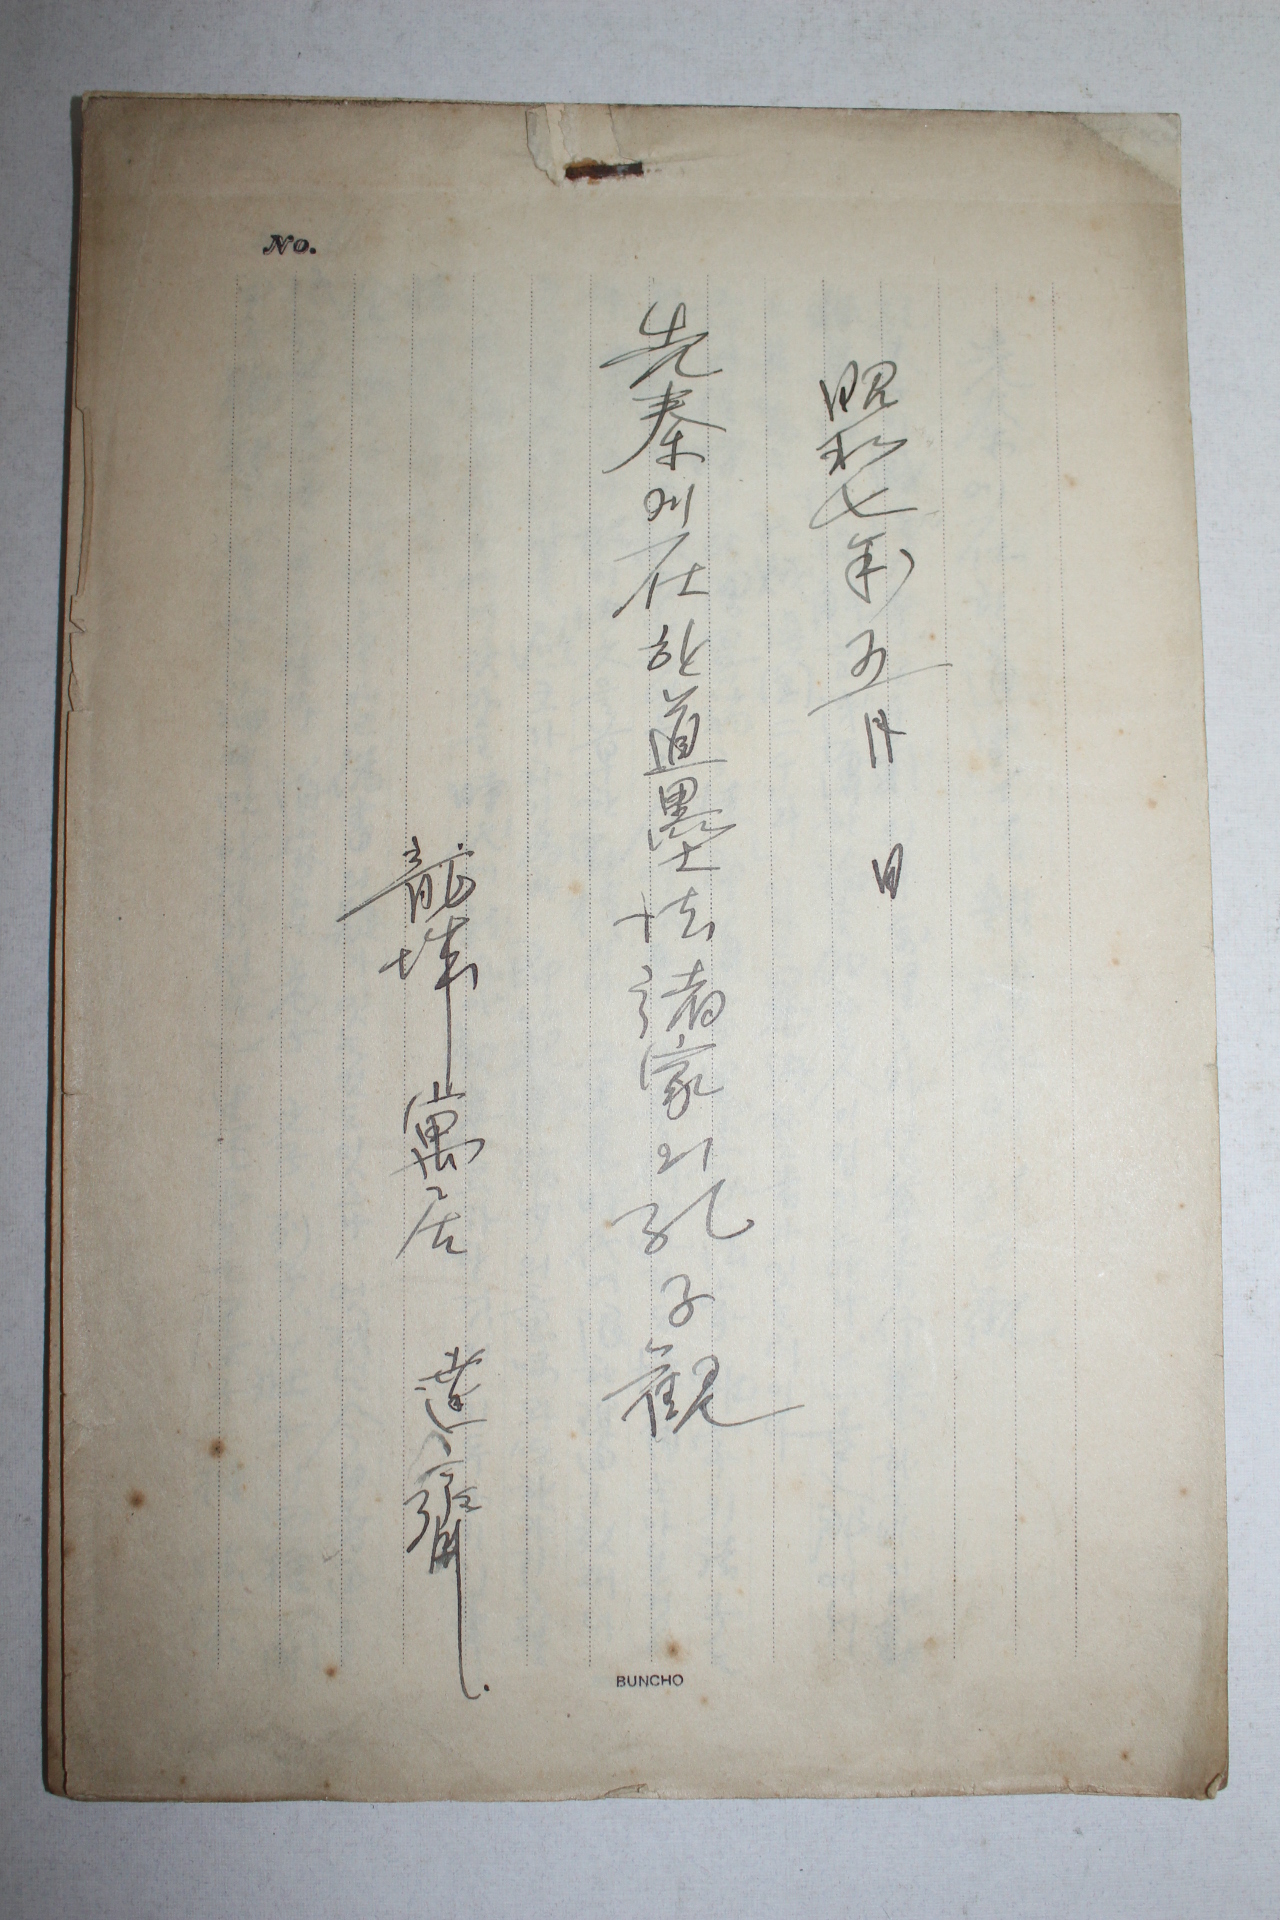 No.
昭和七年五月 日
先秦에在한道墨法諸家의孔子觀
龍塘寓居 達齋
BUNCHO